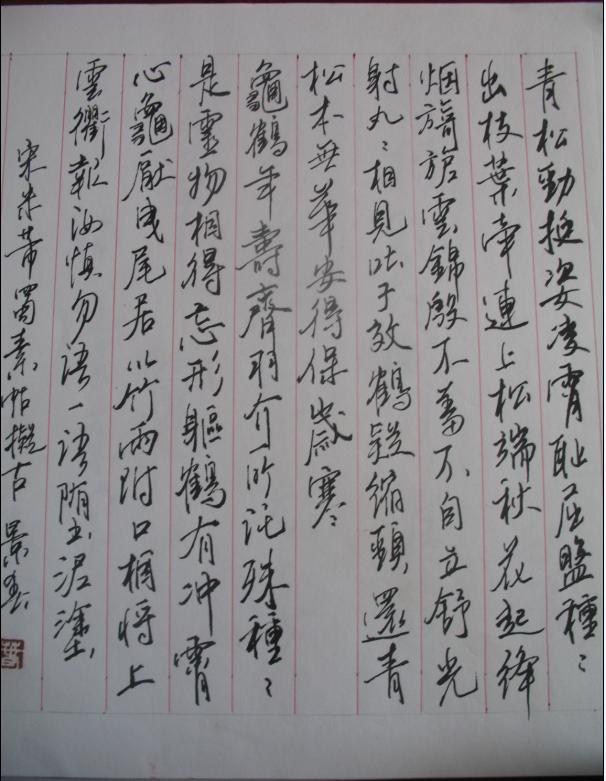 青松勁挺姿凌霄耻屈盤種〻
出枝葉牽連上松端秋花起絳
烟旖旎雲錦殷不羞不自立舒光
射丸〻相見吐子效鶴疑縮頸還青
松本無華安得保歲寒
龜鶴年壽齊羽介所託殊種〻
是靈物相得忘形軀鶴有冲霄
心龜厭曳尾居以竹兩附口相将上
雲衢報汝慎勿語一語墮泥塗
宋米芾蜀素帖擬古 景春